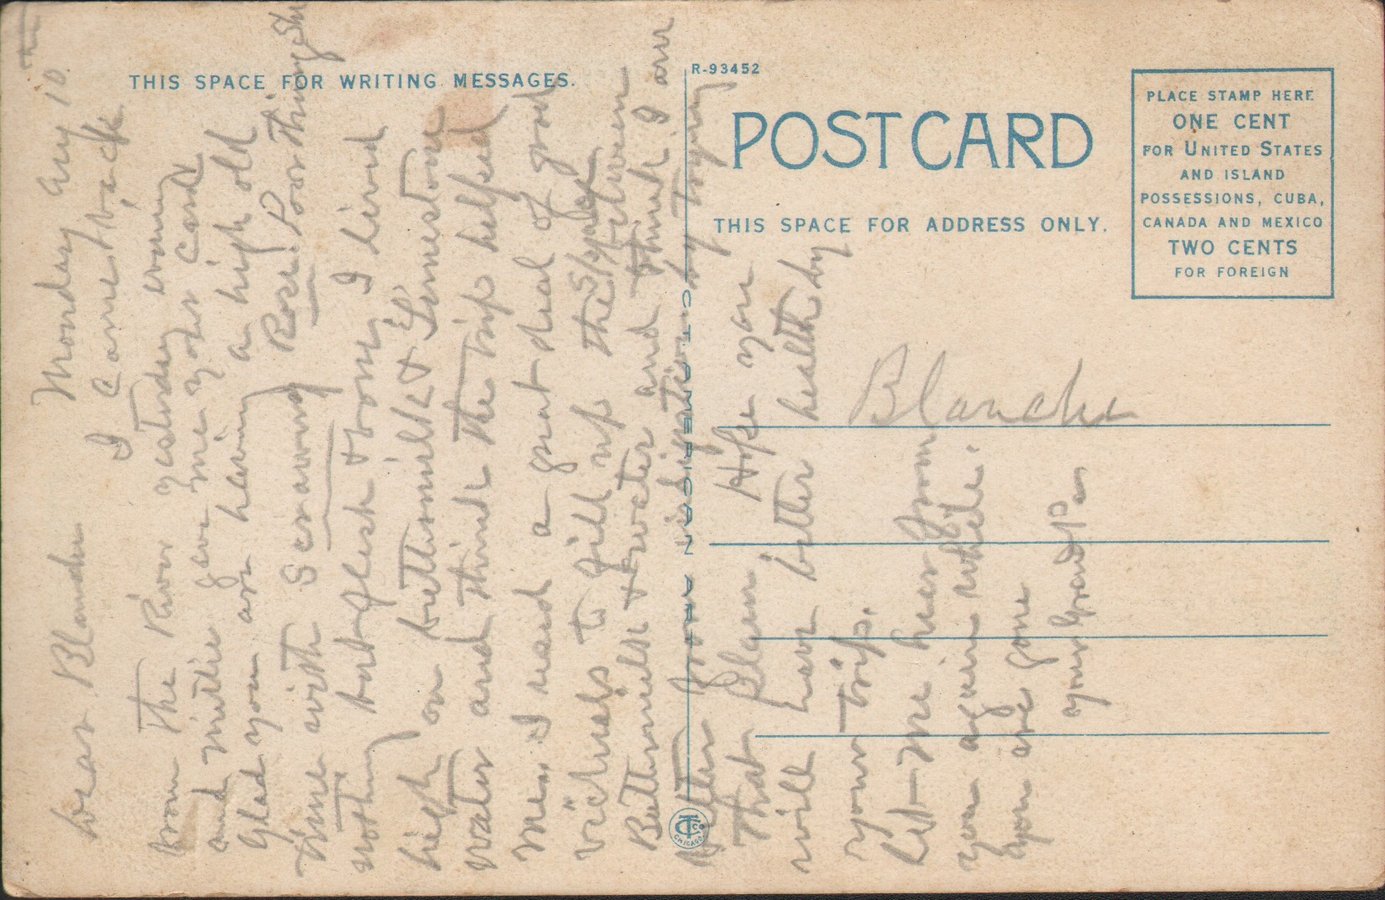 THIS SPACE FOR WRITING MESSAGES.
R-93452
POST CARD
THIS SPACE FOR ADDRESS ONLY.
PLACE STAMP HERE
ONE CENT
FOR UNITED STATES
AND ISLAND
POSSESSIONS, CUBA,
CANADA AND MEXICO
TWO CENTS
FOR FOREIGN
C. T. AMERICAN ART
CHICAGO
Blanche
Monday Aug 10
Dear Blanche
I came back
from the River yesterday evening
and Millie gave me your card
Glad you are having a high old
time with Rose Poor thing She
nothing but flesh & bones I lived
high on buttermilk & Limestone
water and think the trip helped
me. I need a great deal of good
victuals to fill up the spaces
between
Buttermilk & water and think I am
better from indigestion by
That plan Hope you
will have better health by
your trip.
Let me hear from
you again while
you are gone
your Grand Pa